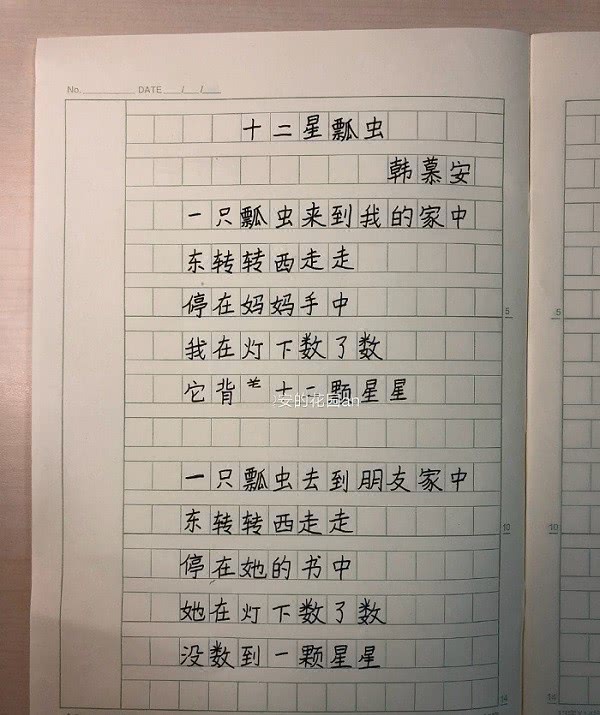 No. DATE / /
十二星瓢虫
韩慕安
一只瓢虫来到我的家中
东转转西走走
停在妈妈手中
我在灯下数了数
它背着十二颗星星
安的花园an
5
5
一只瓢虫去到朋友家中
东转转西走走
10
10
停在她的书中
她在灯下数了数
没数到一颗星星